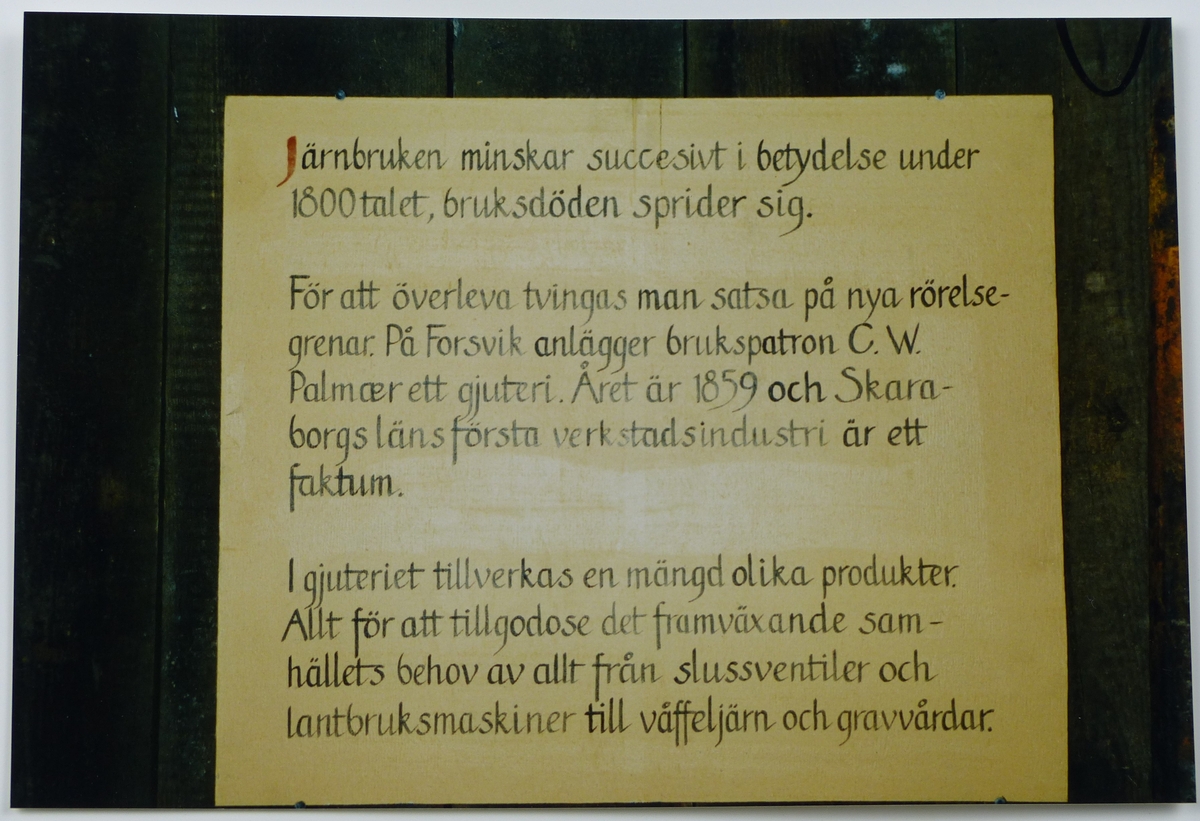 Järnbruken minskar succesivt i betydelse under
1800talet, bruksdöden sprider sig.
För att överleva tvingas man satsa på nya rörelse-
grenar. På Forsvik anlägger brukspatron C. W.
Palmær ett gjuteri. Året är 1859 och Skara-
borgs läns första verkstadsindustri är ett
faktum.
I gjuteriet tillverkas en mängd olika produkter.
Allt för att tillgodose det framväxande sam-
hällets behov av allt från slussventiler och
lantbruksmaskiner till våffeljärn och gravvårdar.